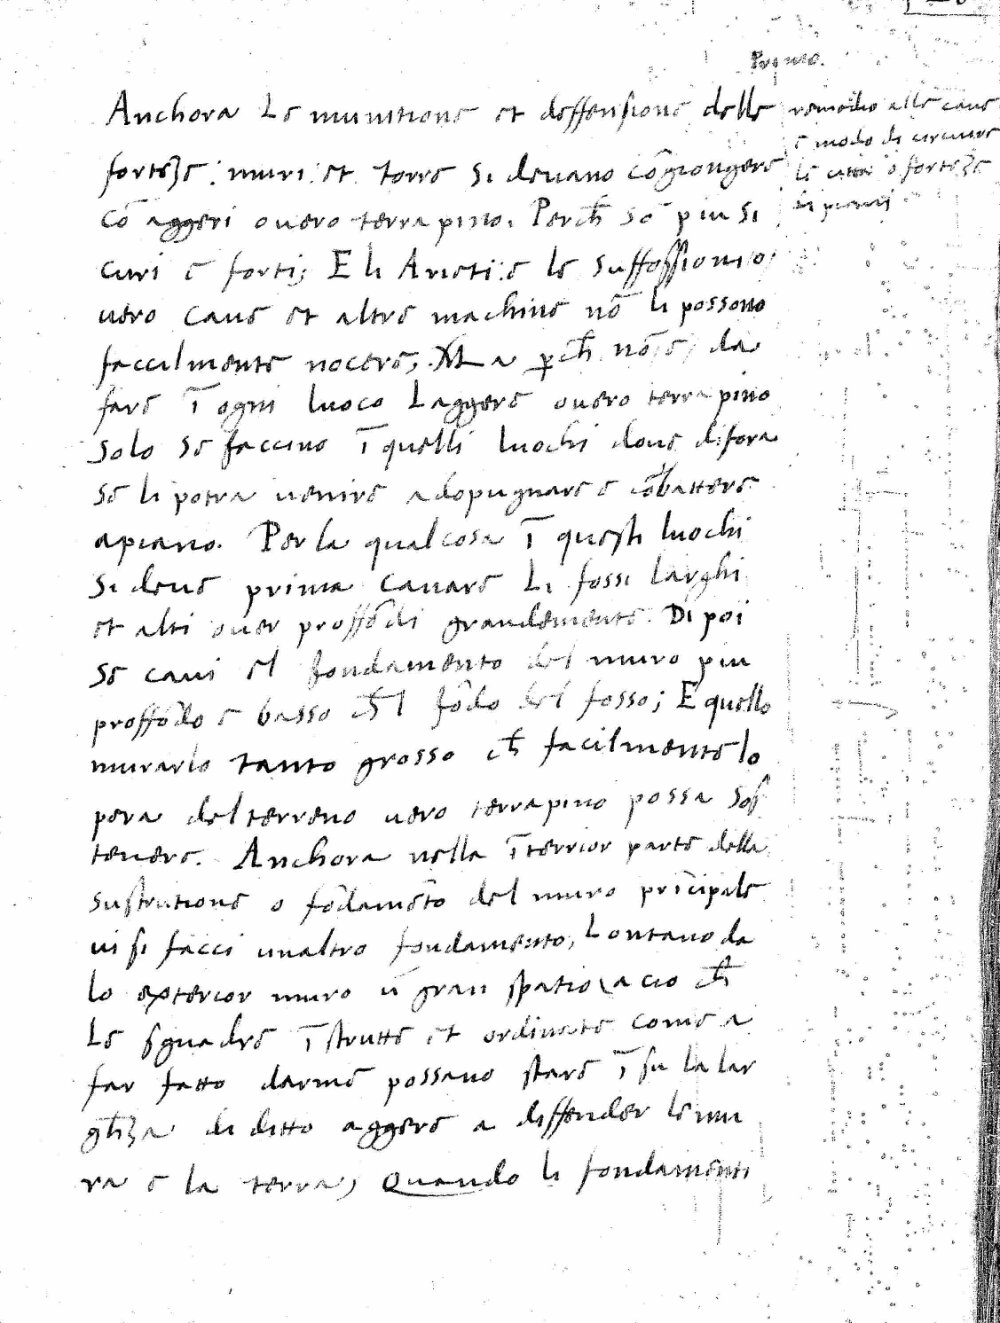 Primo.
Anchora Le munitione et deffensione delle
forteze: muri: et torre si devano cō giongere
cō aggeri overo terrapino. Perch̄ sō piu si
curi e forti; E li Arieti: e le suffossioni o
vero cave et altre machine nō li possono
faccilmente nocere; Ma p̱ch̄ nō e da
fare ī ogni luoco Laggere overo terrapino
solo se faccino ī quelli luochi dove difora
se li potra venire adopugnare e cōbattere
apiano. Per la qual cosa ī questi luochi
Si deve prima cavare Li fossi larghi
et alti over proffōdi grandemente. Di poi
se cavi el fondamento del muro piu
proffōdo e basso ch̄l fōdo del fosso; E quello
murarlo tanto grosso ch̄ facilmente lo
pera del terreno vero terrapino possa sos
tenere. Anchora nella īterrior parte della
sustrutione o fōdamēto del muro prīcipale
vi si facci unaltro fondamento, Lontano da
lo exterior muro ū gran spatio, acio ch̄
Le squadre īstrutte et ordinate come a
far fatto darme possano stare ī su la lar
gh̄za di ditto aggere a diffender le mu
ra e la terra, Quando li fondamenti
remedio alle cave
e modo di circuire
le citta o forteze